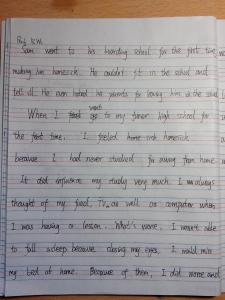 Sam went to his boarding school for the first time
making him homesick. He couldn't fit in the school and
fell ill. He even hated his parents for leaving him in the school
When I first went to my junior high school for
the first time, I feeled home-sick homesick
because I had never studied far away from home
It did influence my study very much. I was always
thought of my food, TV as well as computer when
I was having a lesson. What's worse, I wasn't able
to fall asleep because closing my eyes, I would miss
my bed at home. Because of them, I did worse and